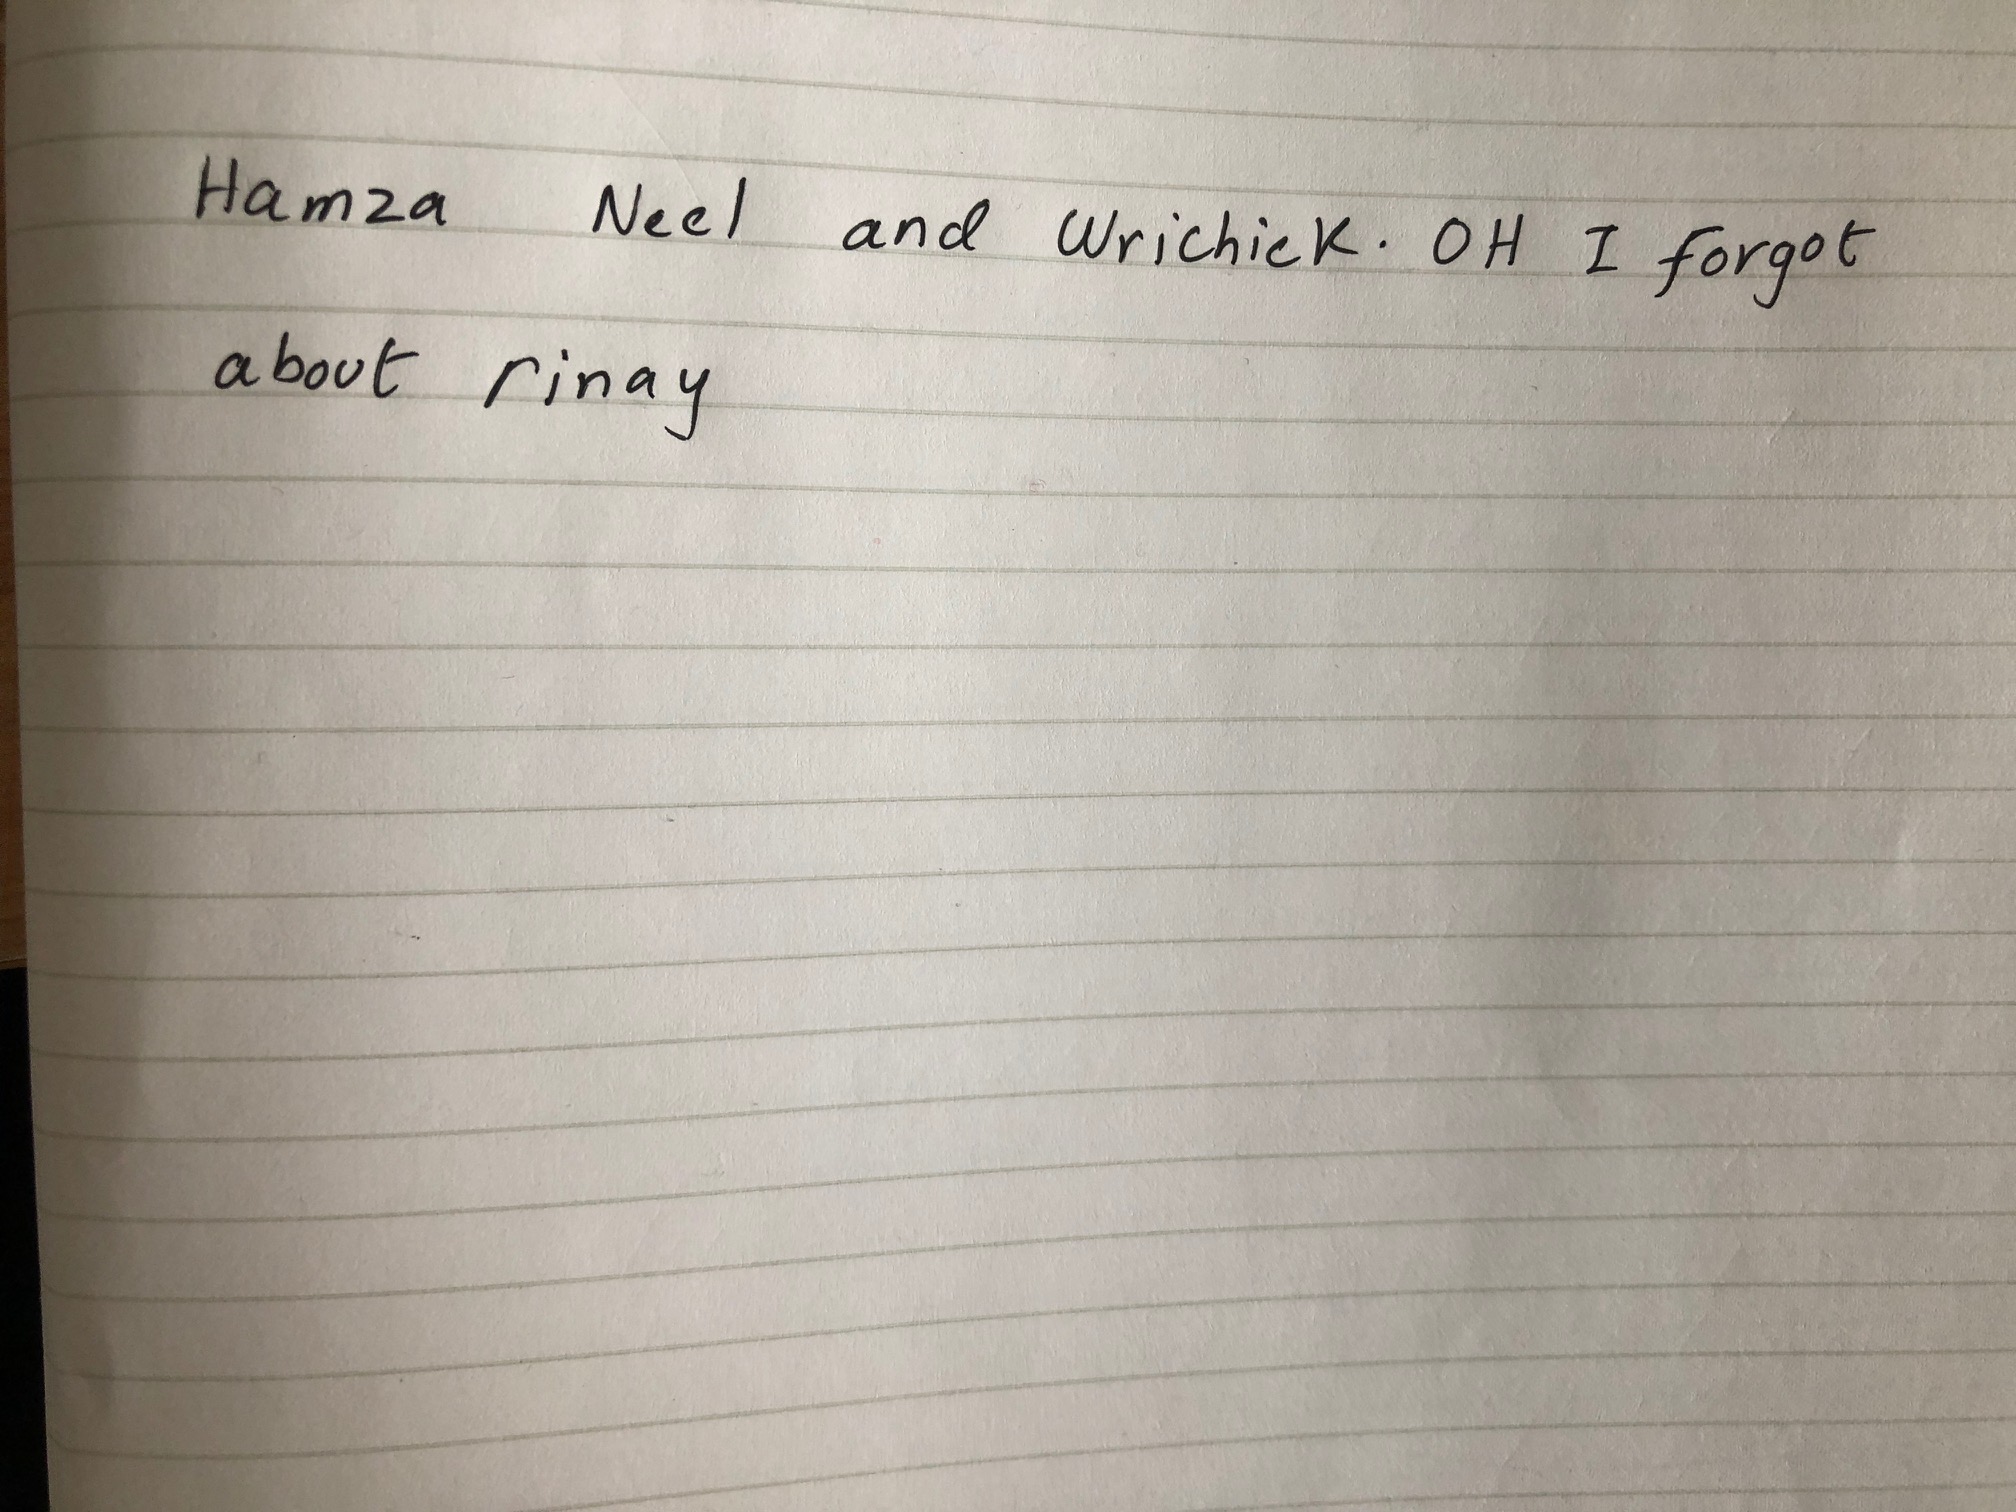 Hamza Neel and Wrichick. OH I forgot
about rinay